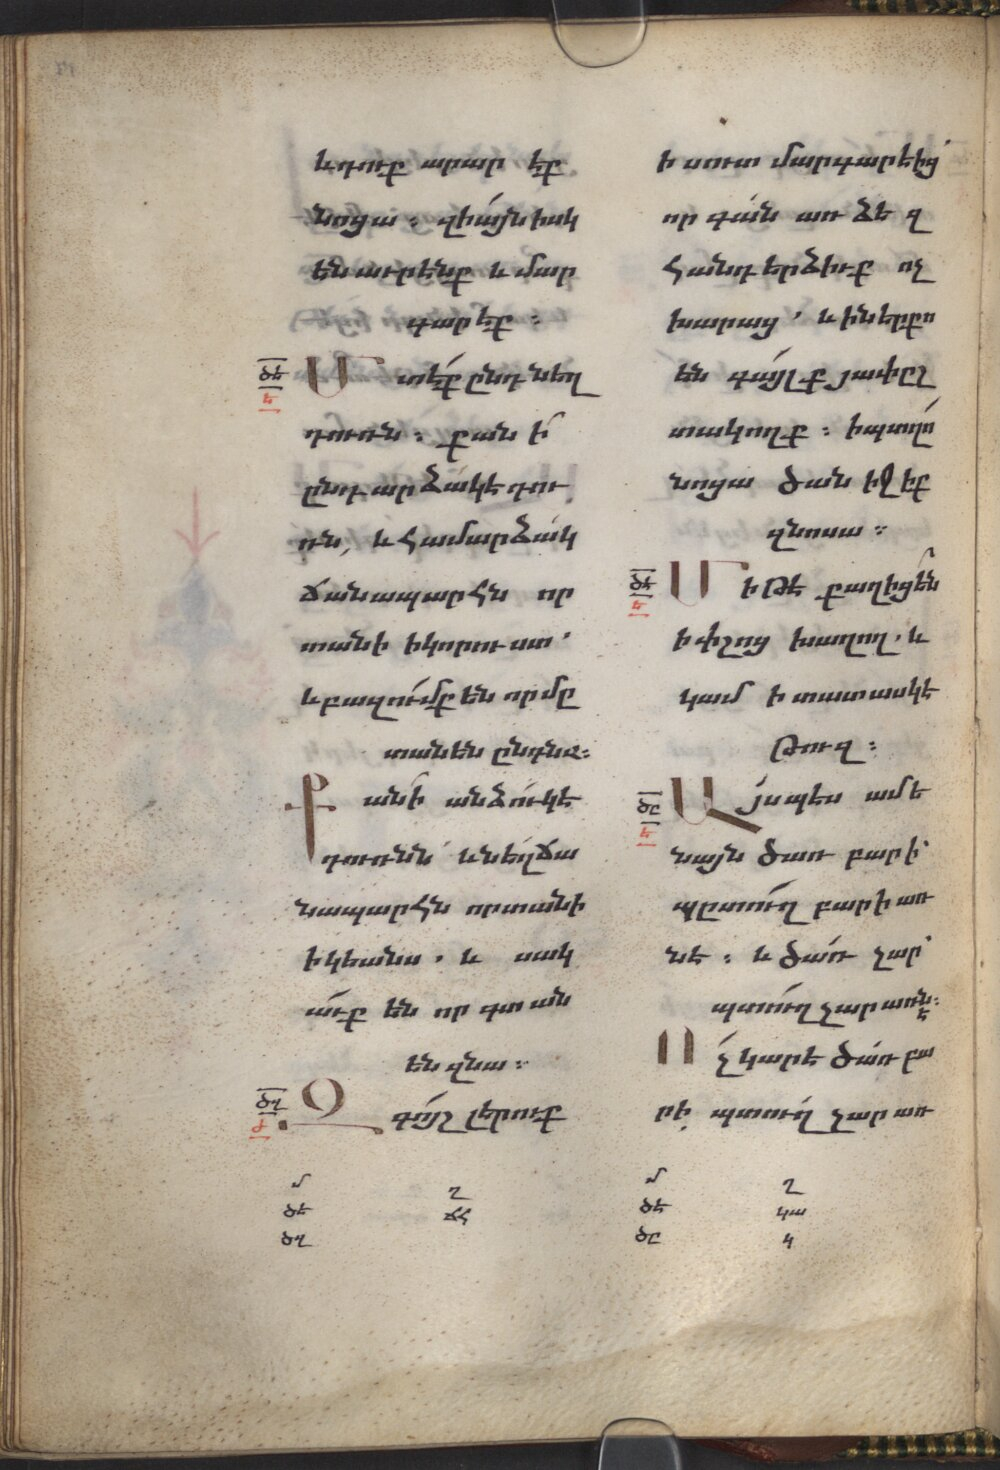 և դուք արար էք
նոցա ։ զի այն իսկ
են աւրէնք և մար
գարէք ։
ծե
ե
Մտէք ընդ նեղ
դուռն ։ քան ի՛
ընդ արձակ դու
ռն, և համարձակ
ճանապարհն որ
տանի ի կորուստ՝
և բազումք են որ մը
տանեն ընդնա։
Քանի անձուկ է
դուռնն՝ և նեղ ճա
նապարհն որ տանի
ի կեանս ․ և սակ
աւք են որ գտան
են զնա ։
ծզ
ժ
Զգոյշ լերուք
ի սուտ մարգարէից՝
որ գան առ ձեզ
հանդերձիւք ոչ
խարաց ՝ և ի ներքո
են գայլք յափըշ
տակողք ։ ի պտղո
նոցա ծանիջիք
զնոսա ։
ծէ
ե
Միթէ քաղիցեն
ի փշոց խաղող ․ և
կամ ի տատասկէ
թուզ ։
ծը
ե
Այսպէս ամե
նայն ծառ բարի՝
պըտուղ բարի առ
նէ ։ և ծառ չար՝
պտուղ չար առնէ։
Ոչ կարէ ծառ բա
րի, պտուղ չար առ
մ
ծե
ծզ
ղ
ճհ
մ
ծէ
ծը
ղ
կա
կ